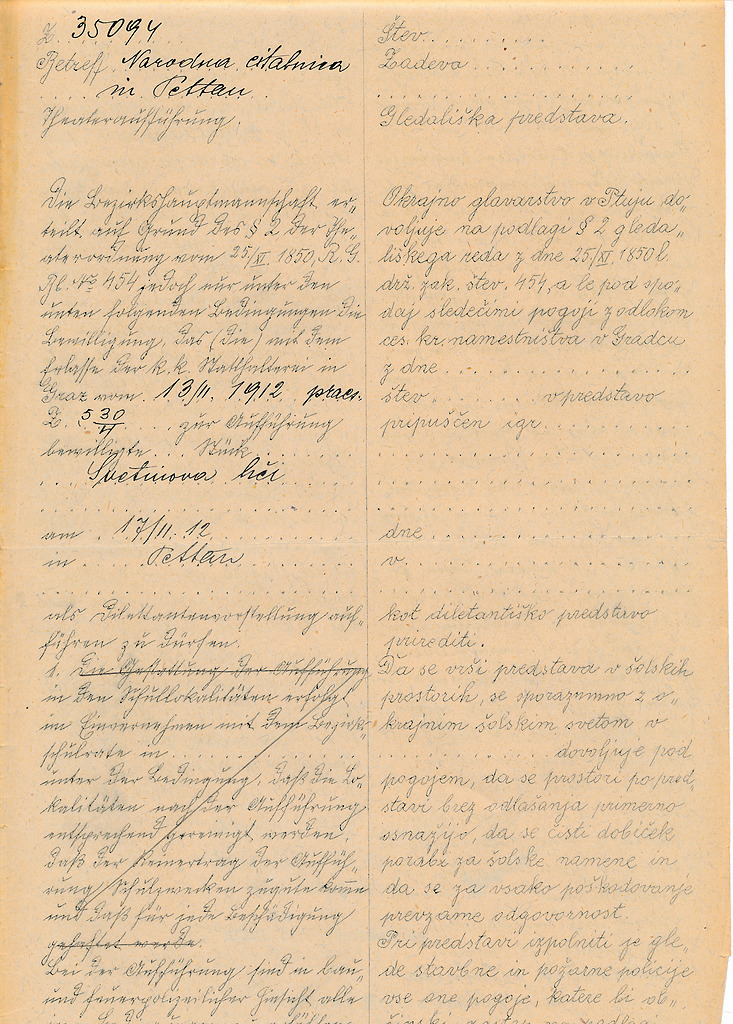 Z. 35094
Betreff Narodna čitalnica
in Pettau
Theateraufführung.
Die Bezirkshauptmannschaft er„
teilt auf Grund des § 2 der The„
aterordnung vom 25./XI. 1850, R. G.
Bl. No 454 jedoch nur unter den
unten folgenden Bedingungen die
Bewilligung, das (die) mit dem
Erlasse der k. k. Statthalterei in
Graz vom 13/II. 1912 praes.
Z. 5 30/4 zur Aufführung
bewilligte . . . Stück . . . . . .
. . . Svetinova hči . . . . . .
am . 17/II. 12 . . . . . . .
in . . . . Pettau . . . . . .
als Dilettantenvorstellung auf„
führen zu dürfen.
1. Die Gestattung der Aufführung
in den Schullokalitäten erfolgt
im Einvernehmen mit dem Bezirks„
schulrate in . . . . . . . . . .
unter der Bedingung, daß die Lo„
kalitäten nach der Aufführung
entsprechend gereinigt werden,
daß der Reinertrag der Auffüh„
rung Schulzwecken zugute komme
und daß für jede Beschädigung
gehaftet werde.
Bei der Aufführung sind in bau„
und feuerpolizeilicher Hinsicht alle
Štev. . . . . . . . .
Zadeva . . . . . . . . . .
Gledališka predstava.
Okrajno glavarstvo v Ptuju do„
voljuje na podlagi § 2 gleda„
liškega reda z dne 25./XI. 1850 l.
drž. zak. štev. 454, a le pod spo„
daj sledečimi pogoji z odlokom
ces. kr. namestništva v Gradcu
z dne . . . . . . . . . . . . .
štev. . . . . . . . v predstavo
pripuščen igr. . . . . . . . .
dne . . . . . . . . . . . . . .
v . . . . . . . . . . . . . . .
kot diletantiško predstavo
prirediti.
Da se vrši predstava v šolskih
prostorih, se sporazumno z o„
krajnim šolskim svetom v
. . . . . . . . . . dovoljuje pod
pogojem, da se prostori po pred„
stavi brez odlašanja primerno
osnažijo, da se čisti dobiček
porabi za šolske namene in
da se za vsako poškodovanje
prevzame odgovornost.
Pri predstavi izpolniti je gle„
de stavbne in požarne policije
vse one pogoje, katere bi ob„